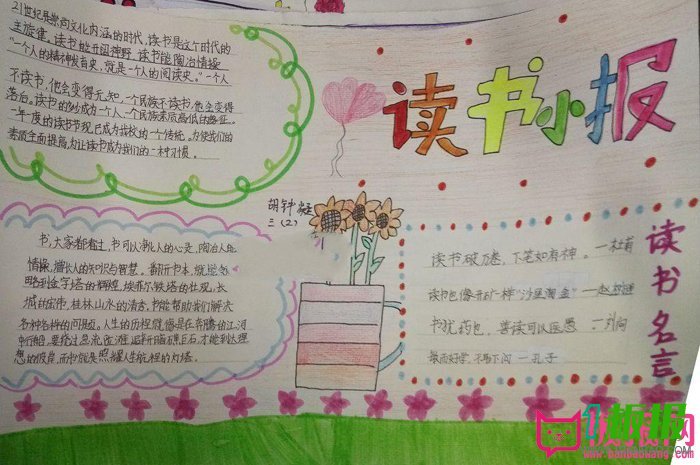 21世纪是崇尚文化内涵的时代,读书是这个时代的
主旋律。读书能开阔视野,读书能陶冶情操
"一个人的精神发育史,就是一个人的阅读史。"一个人
不读书,他会变得无知,一个民族不读书,他会变得
落后。读书的
一年一度的读书节现已成为我校的一个传统。为使我们的
素质全面提高,让读书成为我们的一种习惯。
读书小报
胡钟凝
三(2)
书,大家都看过,书可以净化人的心灵,陶冶人的
情操,增长人的知识与智慧。翻开书本,就能领
略到金字塔的辉煌,埃菲尔铁塔的壮观,长
城的宏伟,桂林山水的清秀,书能帮助我们解决
各种各样的问题。人生的历程就像是在奔腾的江河
中行船,要绕过急流、漩涡,避开暗礁巨石,才能到达理
想的彼岸,而书就是照耀人生航程的灯塔。
读书破万卷,下笔如有神。—杜甫
读书也像开矿一样"沙里淘金"—赵树理
书犹药也,善读可以医愚。—刘向
敏而好学,不耻下问—孔子
读书名言
www.banbaowang.com